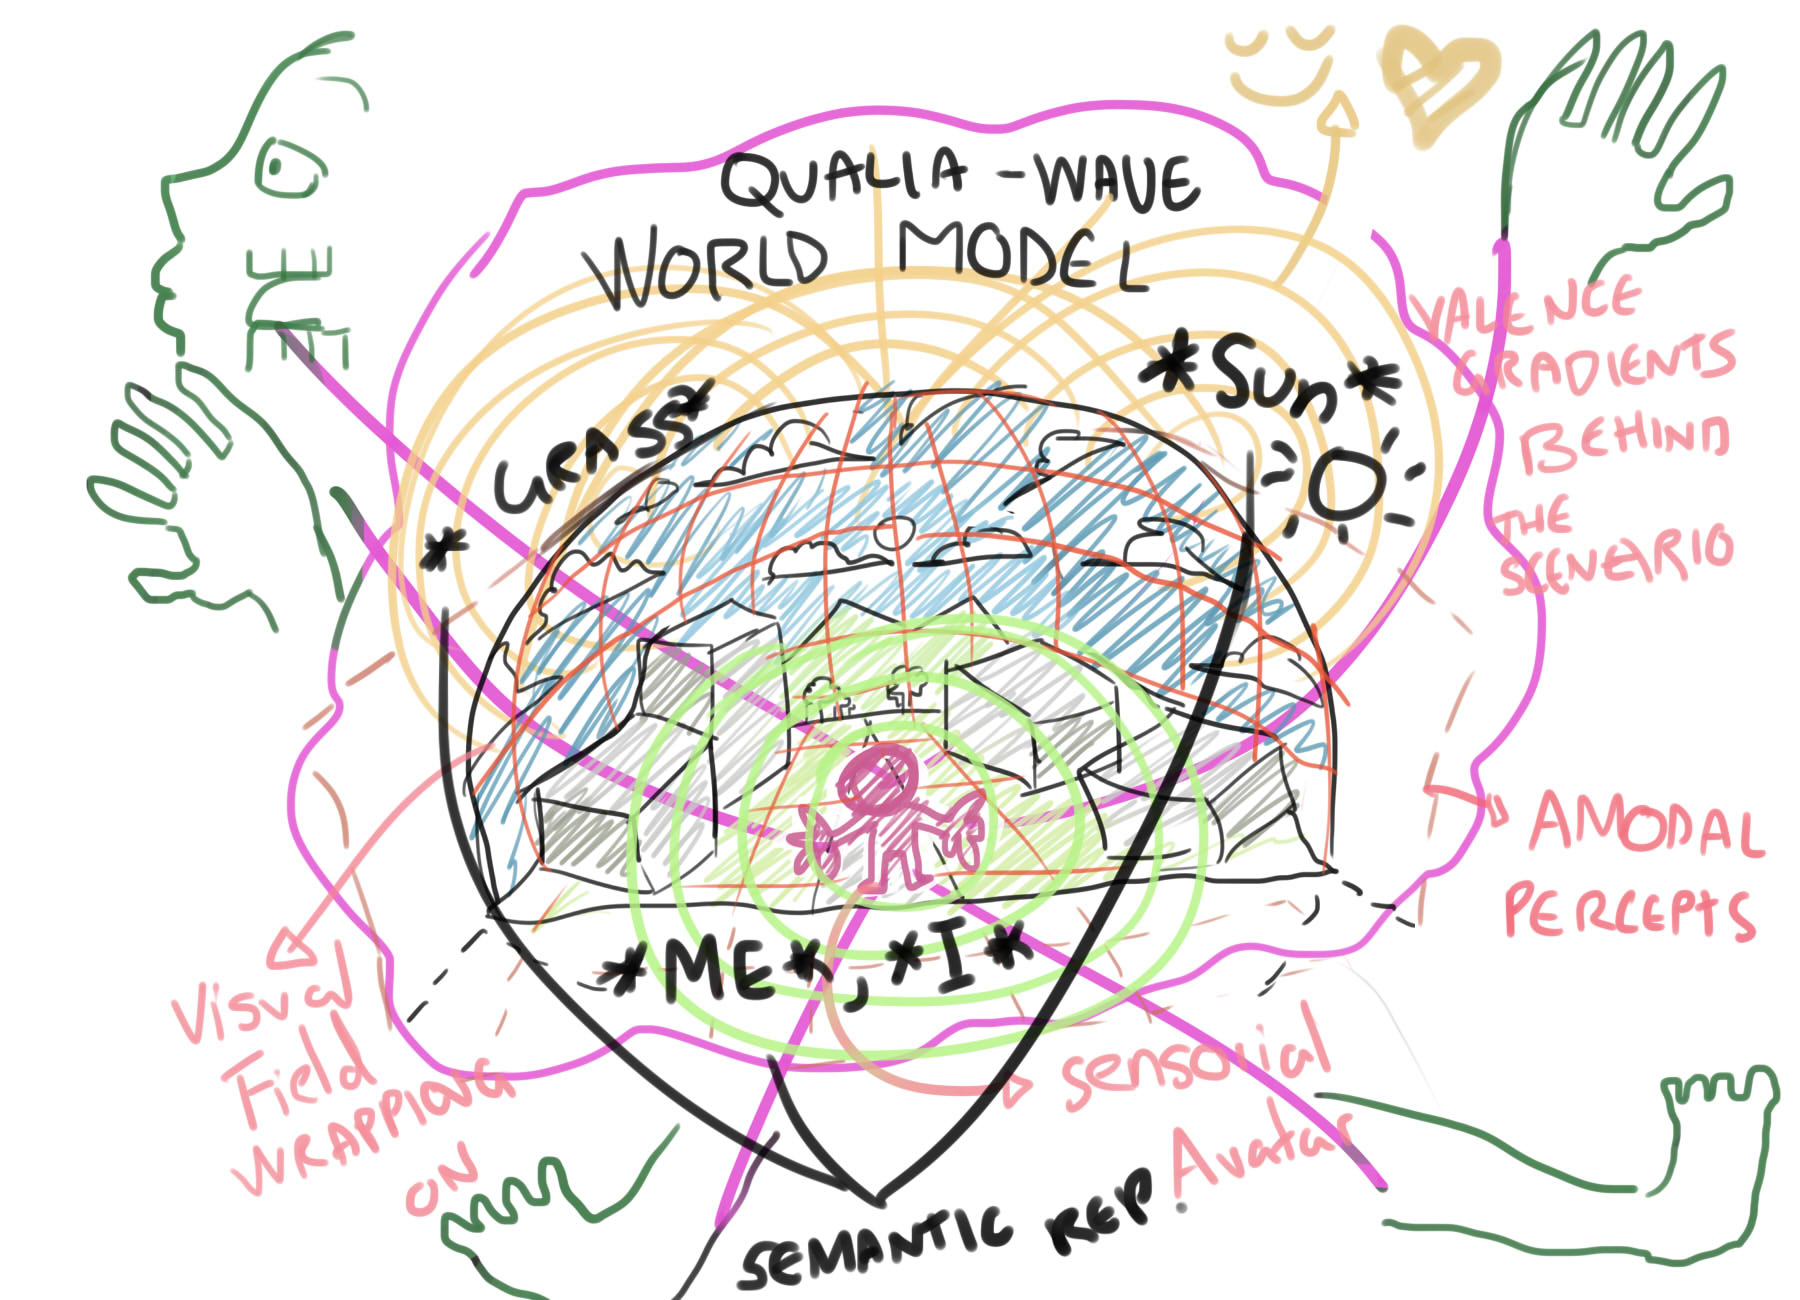 QUALIA-WAVE
WORLD MODEL
*GRASS*
*Sun*
VALENCE
GRADIENTS
BEHIND
THE
SCENEARIO
AMODAL
PERCEPTS
*ME*, *I*
Visual
Field
WRAPPIONG
ON
sensorial
Avatar
SEMANTIC REP.